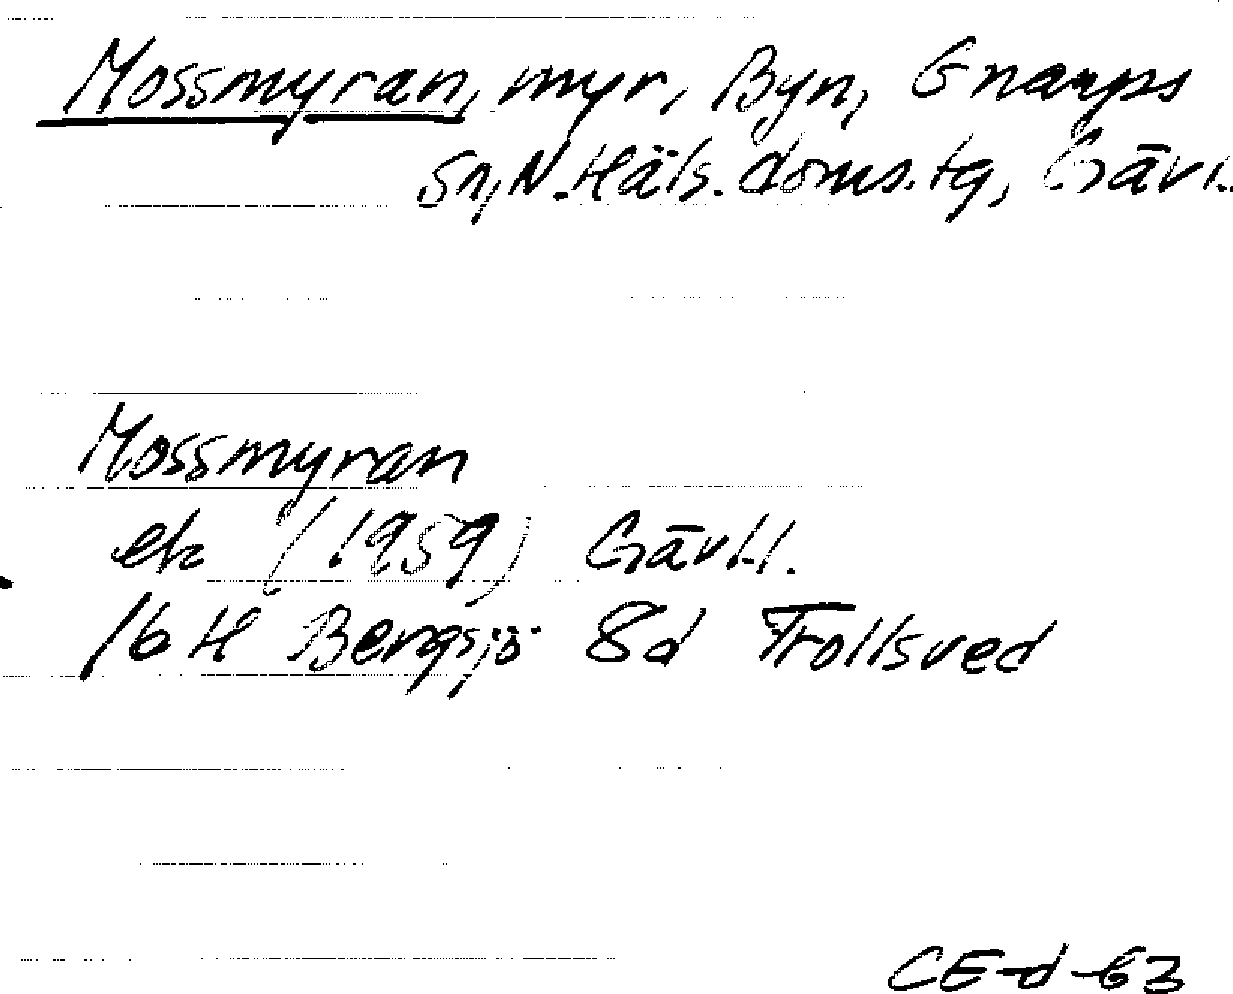 Mossmyran, myr, Byn, Gnarps
sn, N. Häls. doms. tg, Gävl.
Mossmyran
ek (1959) Gävl l.
16 H Bergsjö 8d Trollsved
CE-d-63